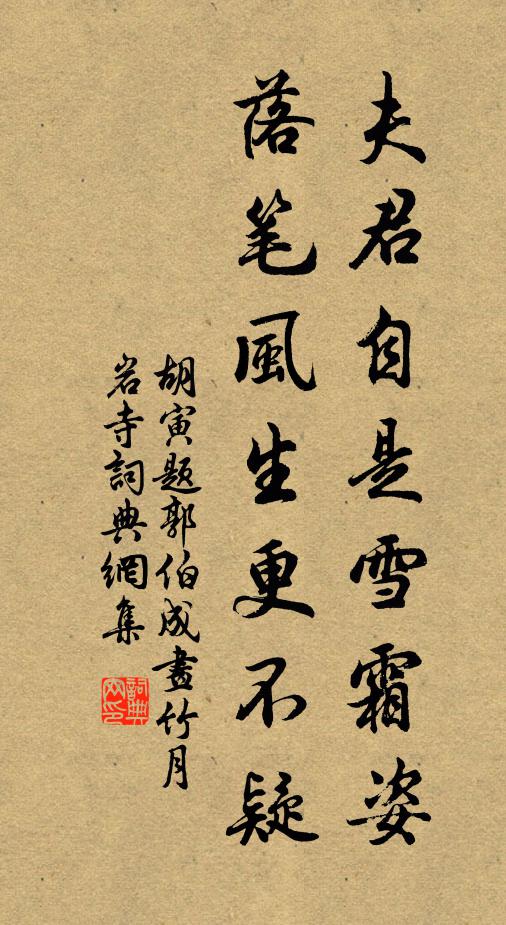 夫君自是雪霜姿
落笔風生更不疑
胡寅題郭伯成畫竹月
岩寺詞典網集
詞典网印